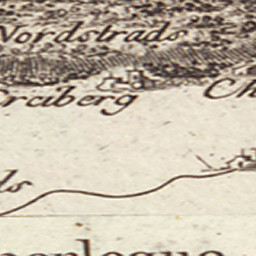 Nordstrads
Freiberg
Ch
ls